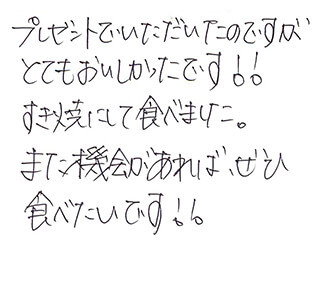 プレゼントでいただいたのですが
とてもおいしかったです!!
すき焼にして食べました。
また機会があれば、ぜひ
食べたいです!!